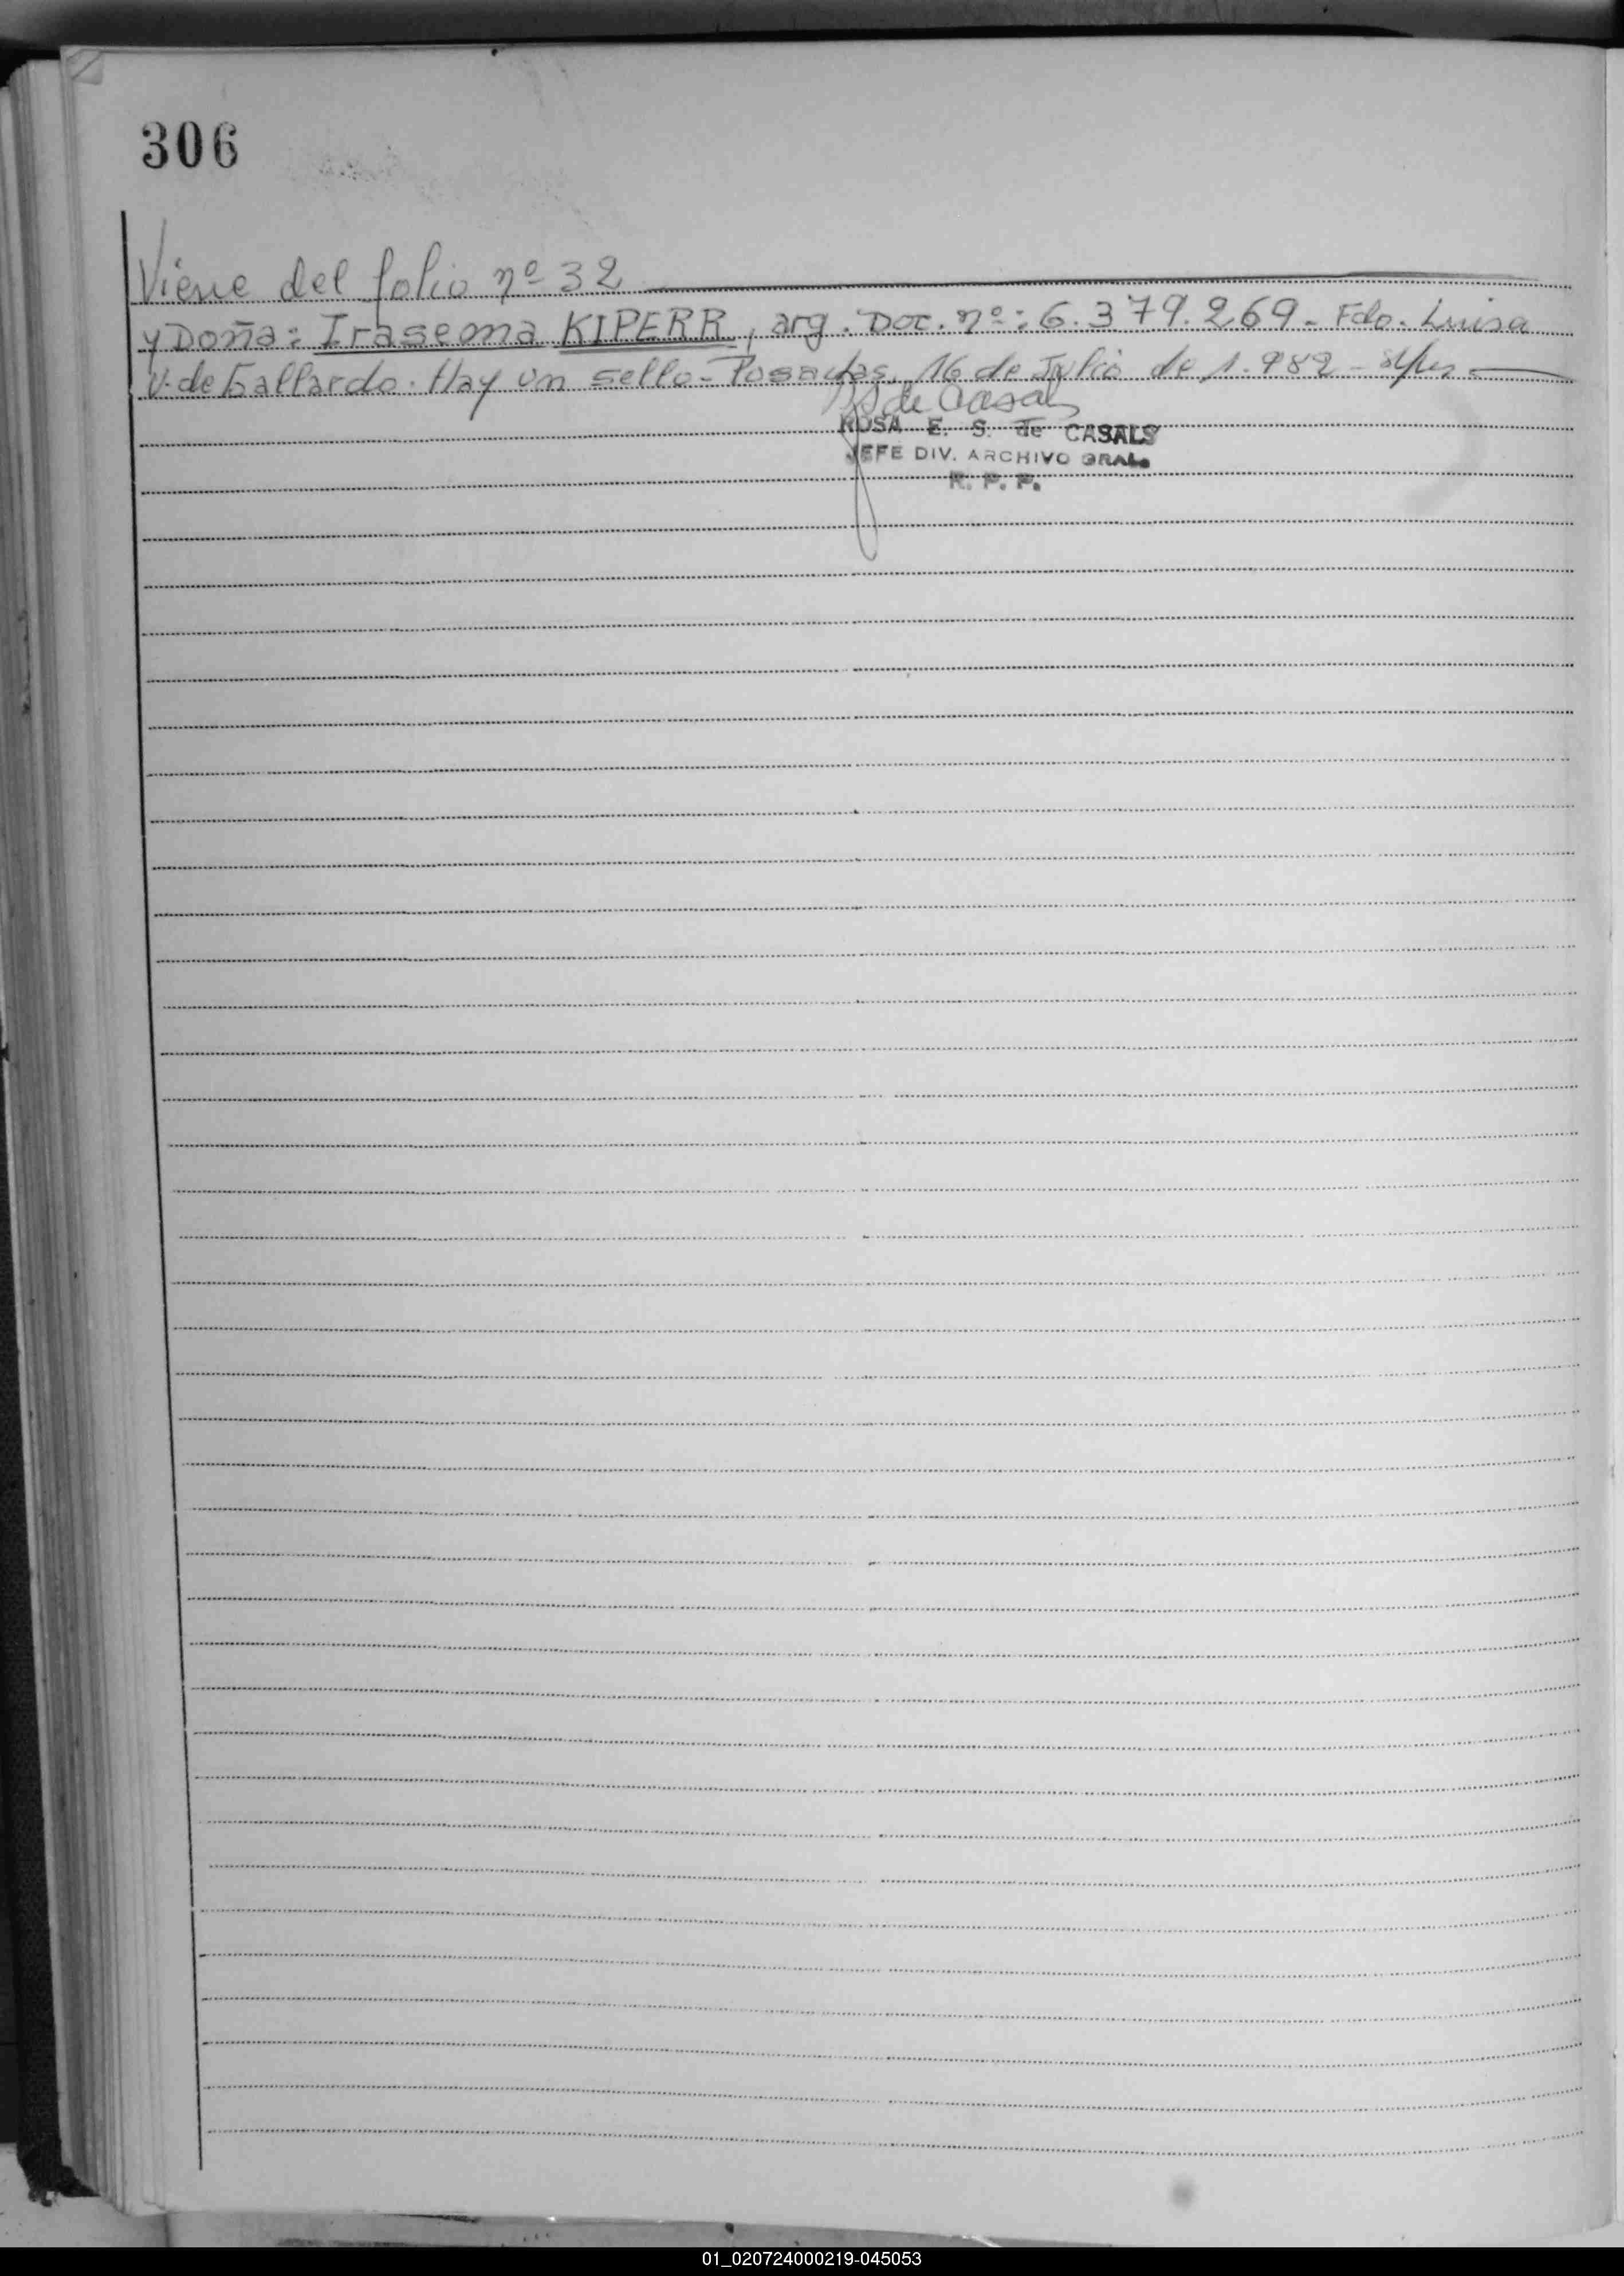 306
Viene del folio nº 32
y Doña: Irasema KIPERR, arg. Doc. nº: 6.379.269. Fdo. Luisa
V. de Gallardo. Hay un sello - Posadas, 16 de Julio de 1.982 -
de Casals
ROSA E. S. de CASALS
JEFE DIV. ARCHIVO GRAL.
R. P. P.
01_020724000219-045053